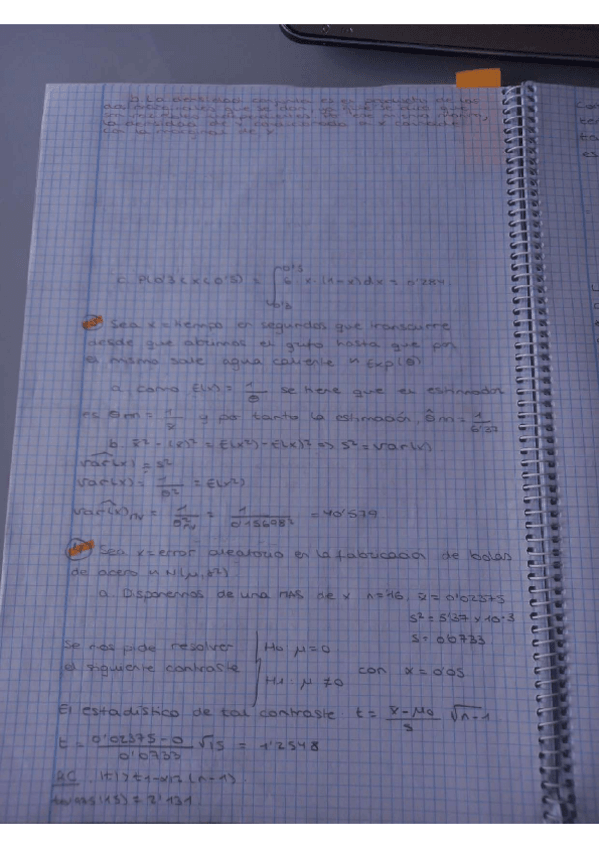 b. La densidad conjunta es el producto de las
la densidad de x condicionada a
con la marginal de x
c. P(0'3<x<0'5) = ∫ 6 x·(1-x)dx = 0'284
Sea x = tiempo en segundos que transcurre
desde que abrimos el grifo hasta que por
el mismo sale agua caliente ~ Exp(θ)
a. como E(x) = 1/θ se tiene que el estimador
es θm = 1/x̄ y por tanto la estimación, θ̂m = 1/6'37
b. x̄² - (x̄)² = E(x²) - E(x)² => S² = Var(x)
Var(x) = S²
Var(x) = 1/θ² = E(x²)
Var(x)mv = 1/θ²mv = 1/0'15698² = 40'579
Sea x = error aleatorio en la fabricación de bolas
de acero ~ N(μ, σ²)
a. Disponemos de una MAS de x n=16, x̄ = 0'02375
S² = 5'37 x 10-3
S = 0'0733
Se nos pide resolver H0 μ = 0
el siguiente contraste H1: μ ≠ 0 con α = 0'05
El estadístico de tal contraste t = x̄ - μ0 / s √n-1
t = 0'02375-0 / 0'0733 √15 = 1'2548
RC |t| > t1-α/2 (n-1)
(15) = 2'131